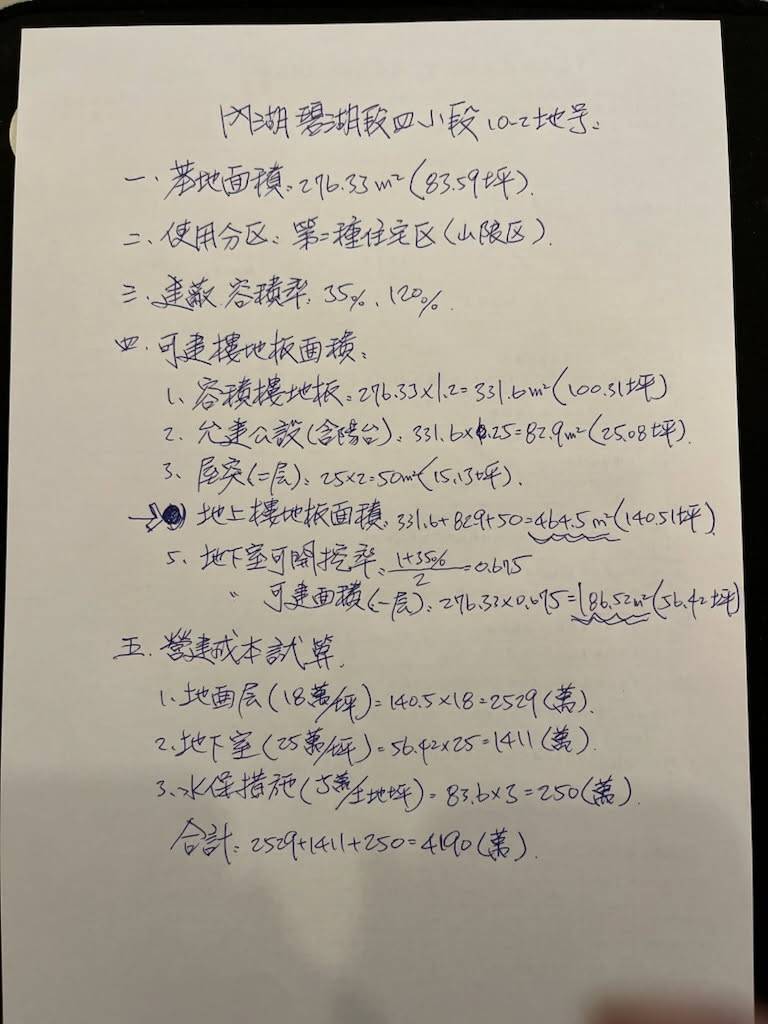 內湖碧湖段四小段10-2地号:
一、基地面積:276.33m²(83.59坪).
二、使用分区:第二種住宅区(山限区).
三、建蔽.容積率:35%、120%.
四、可建樓地板面積:
1、容積樓地板:276.33×1.2=331.6m²(100.31坪)
2、允建公設(含陽台):331.6×0.25=82.9m²(25.08坪).
3、屋突(二层):25×2=50m²(15.13坪).
→● 地上樓地板面積:331.6+829+50=464.5m²(140.51坪)
5、地下室可開挖率:(1+35%)/2=0.675
〃 可建面積(一层):276.33×0.675=186.52m²(56.42坪)
五、營建成本試算.
1、地面层(18萬/坪)=140.5×18=2529(萬).
2、地下室(25萬/坪)=56.42×25=1411(萬).
3、水保措施(3萬/土地坪)=83.6×3=250(萬).
合計:2529+1411+250=4190(萬).